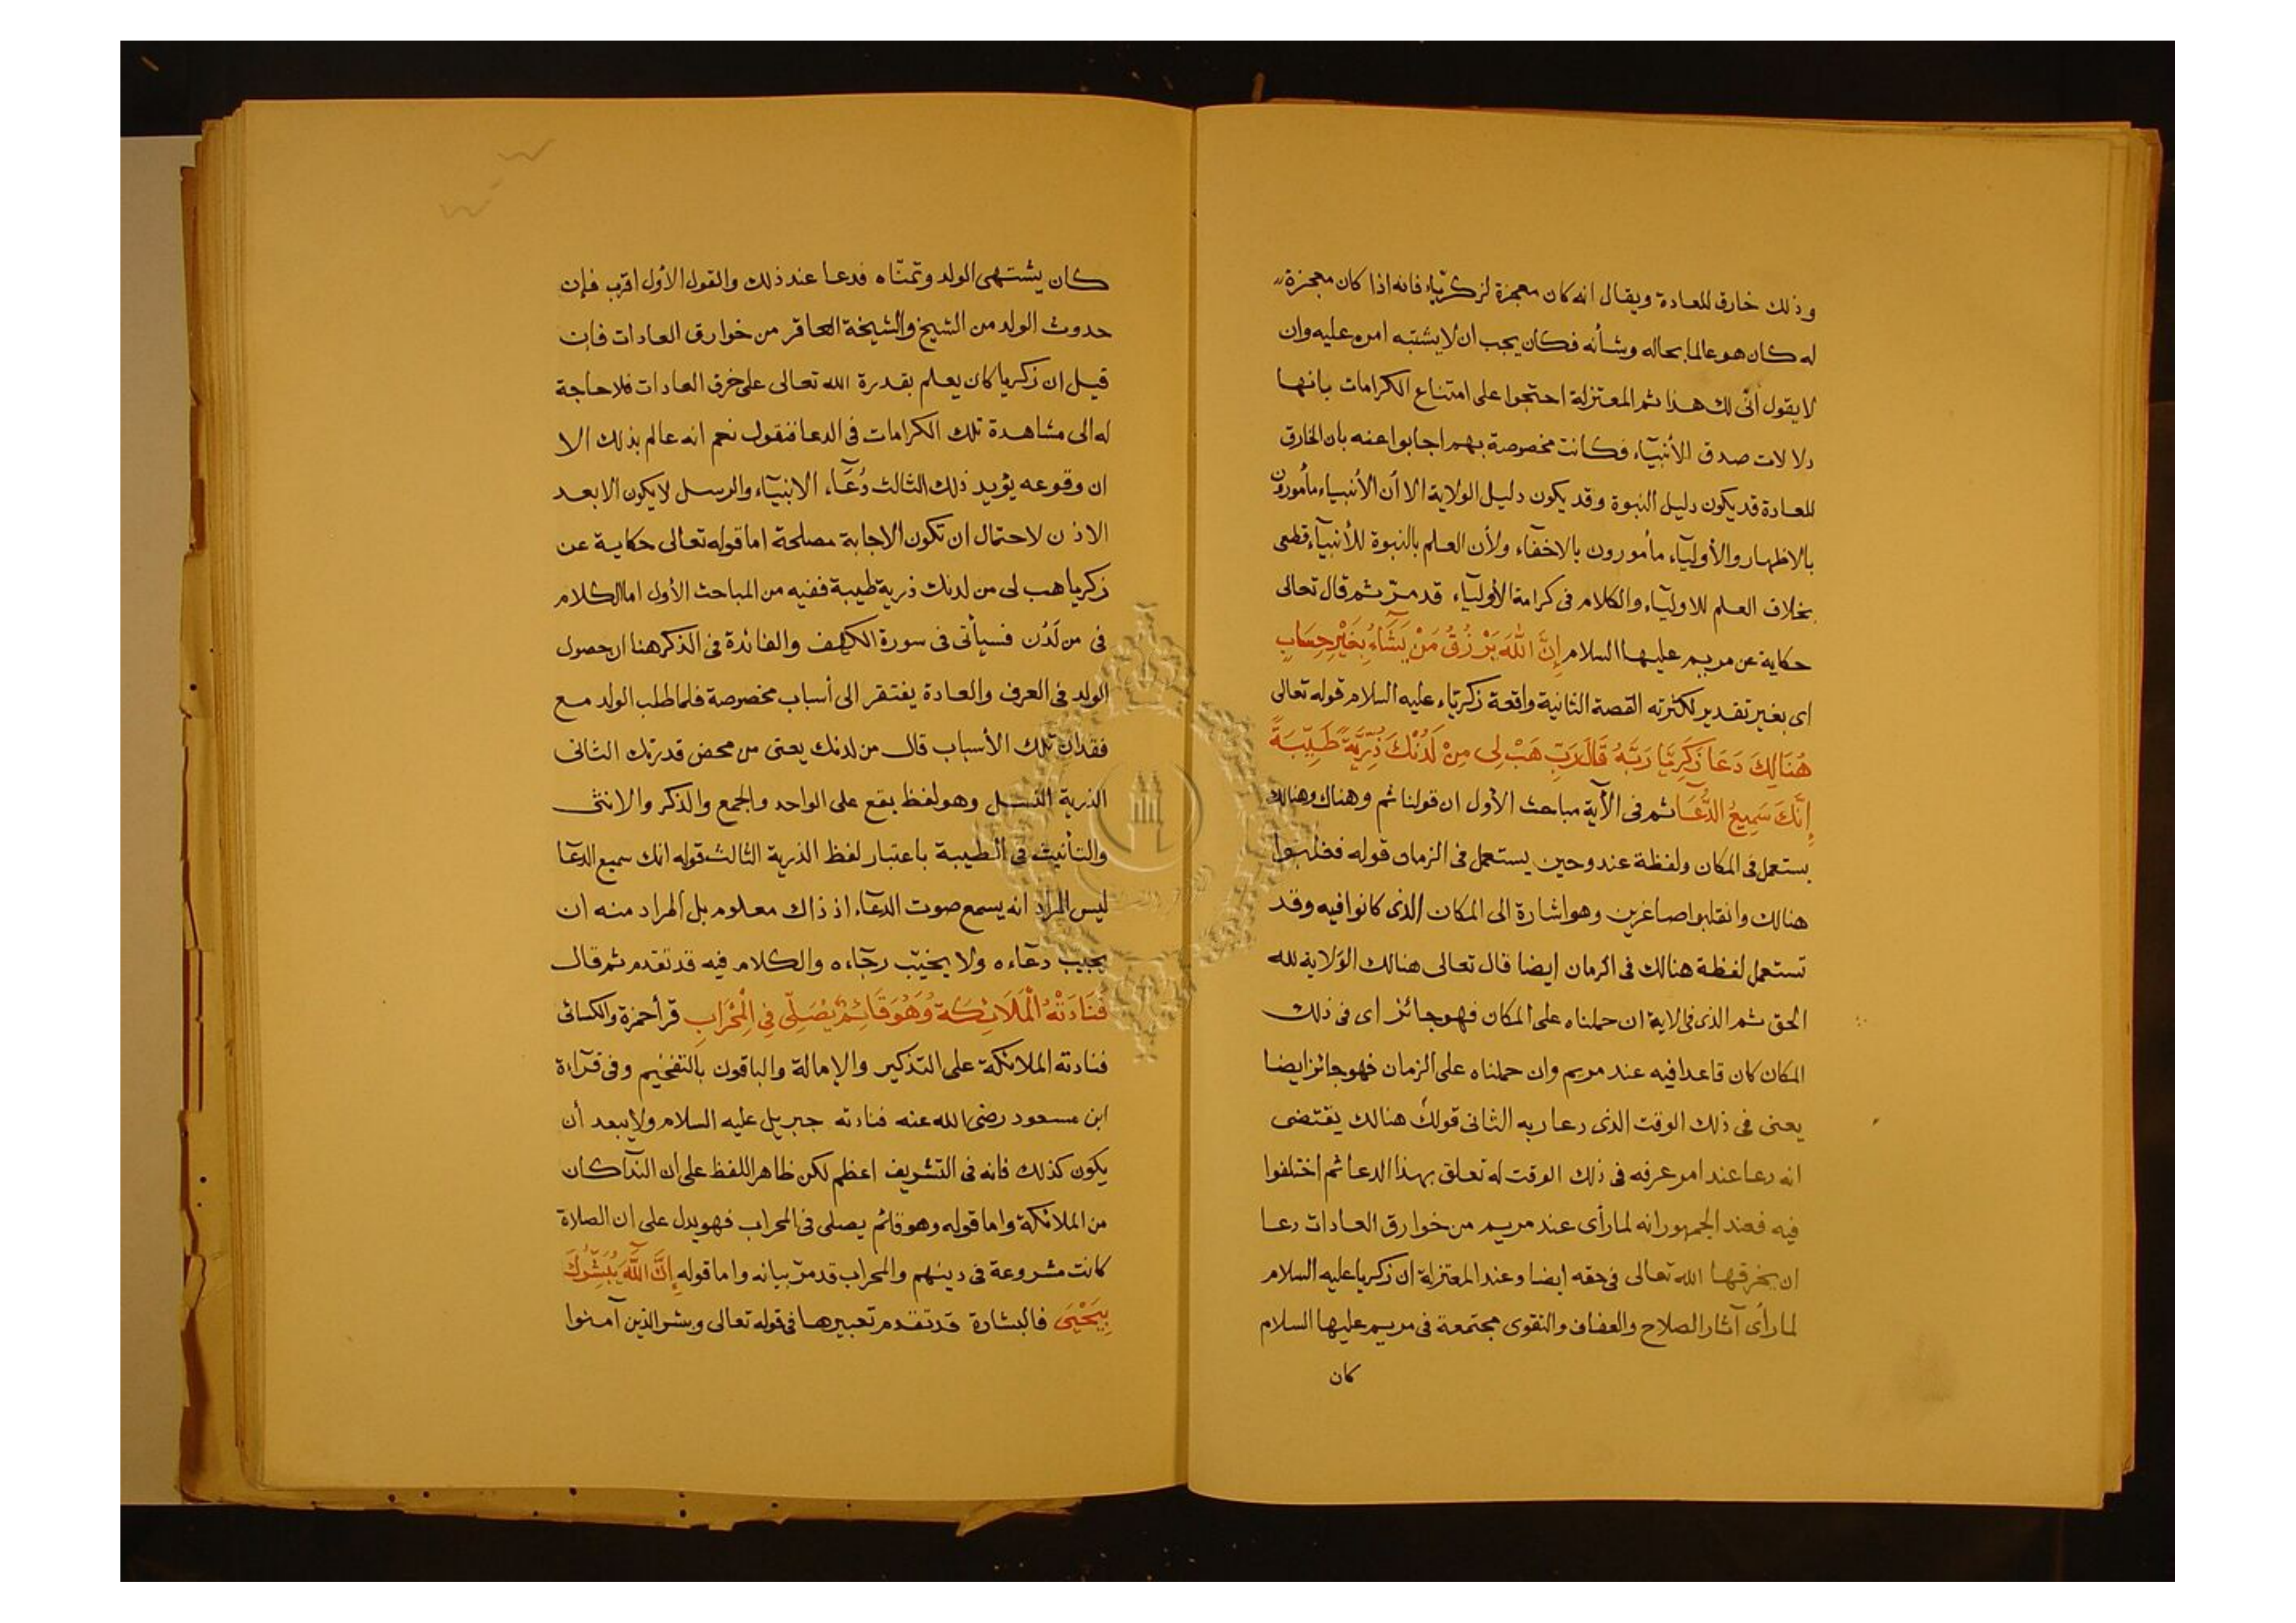 وذلك خارق للعادة ويقال انه كان معجزة لزكرياء فانه اذا كان معجزة
له كان هو عالما بحاله وشأنه فكان يجب ان لا يشتبه امره عليه وان
لا يقول أنّى لك هذا ثم المعتزلة احتجوا على امتناع الكرامات بانها
دلالات صدق الأنبيآء فكانت مخصوصة بهم اجابوا عنه بان الخارق
للعادة قد يكون دليل النبوة وقد يكون دليل الولاية الا أن الأنبياء مأمورون
بالاظهار والأوليآء مأمورون بالاخفاء ولأن العلم بالنبوة للأنبيآء قطعى
بخلاف العلم للاوليآء والكلام فى كرامة الأوليآء قد مرّ ثم قال تعالى
حكاية عن مريم عليها السلام إِنَّ اللَّهَ يَرْزُقُ مَنْ يَشَآءُ بِغَيْرِ حِسَابٍ
اى بغير تقدير لكثرته القصة الثانية واقعة زكرياء عليه السلام قوله تعالى
هُنَالِكَ دَعَا زَكَرِيَّا رَبَّهُ قَالَ رَبِّ هَبْ لِى مِنْ لَدُنْكَ ذُرِّيَّةً طَيِّبَةً
إِنَّكَ سَمِيعُ الدُّعَآ ثم فى الآية مباحث الأول ان قولنا ثم وهناك وهنالك
يستعمل فى المكان ولفظة عند وحين يستعمل فى الزمان قوله فغلبوا
هنالك وانقلبوا صاغرين وهو اشارة الى المكان الذى كانوا فيه وقد
تستعمل لفظة هنالك فى الزمان ايضا قال تعالى هنالك الوَلاية لله
الحق ثم الذى فى الاية ان حملناه على المكان فهو جائز اى فى ذلك
المكان كان قاعدا فيه عند مريم وان حملناه على الزمان فهو جائز ايضا
يعنى فى ذلك الوقت الذى دعا ربه الثانى قولك هنالك يقتضى
انه دعا عند امر عرفه فى ذلك الوقت له تعلق بهذا الدعا ثم اختلفوا
فيه فعند الجمهور انه لما رأى عند مريم من خوارق العادات دعا
ان يخرقها الله تعالى فى حقه ايضا وعند المعتزلة ان زكريا عليه السلام
لما رأى آثار الصلاح والعفاف والتقوى مجتمعة فى مريم عليها السلام
كان
كان يشتهى الولد وتمنّاه فدعا عند ذلك والقول الأول اقرب فإن
حدوث الولد من الشيخ والشيخة العاقر من خوارق العادات فان
قيل ان زكريا كان يعلم بقدرة الله تعالى على خرق العادات فلا حاجة
له الى مشاهدة تلك الكرامات فى الدعا فنقول نعم انه عالم بذلك الا
ان وقوعه يؤيد ذلك الثالث دُعَآء الانبيآء والرسل لا يكون الا بعد
الاذن لاحتمال ان تكون الاجابة مصلحة اما قوله تعالى حكاية عن
زكريا هب لى من لدنك ذرية طيبة ففيه من المباحث الأول اما الكلام
فى من لَدُن فسيأتى فى سورة الكهف والفائدة فى الذكر هنا ان حصول
الولد فى العرف والعادة يفتقر الى أسباب مخصوصة فلما طلب الولد مع
فقدان تلك الأسباب قال من لدنك يعنى من محض قدرتك الثانى
الذرية النسل وهو لفظ يقع على الواحد والجمع والذكر والانثى
والتأنيث فى الطيبة باعتبار لفظ الذرية الثالث قوله انك سميع الدعآ
ليس المراد انه يسمع صوت الدعآء اذ ذاك معلوم بل المراد منه ان
يجيب دعآءه ولا يخيّب رجآءه والكلام فيه قد تقدم ثم قال
فَنَادَتْهُ الْمَلَائِكَةُ وَهُوَ قَائِمٌ يُصَلِّى فِى الْمِحْرَابِ قرأ حمزة والكسائى
فنادته الملائكة على التذكير والإمالة والباقون بالتفخيم وفى قرآءة
ابن مسعود رضى الله عنه فنادته جبريل عليه السلام ولا يبعد أن
يكون كذلك فانه فى التشريف اعظم لكن ظاهر اللفظ على ان الندآ كان
من الملائكة واما قوله وهو قائم يصلى فى المحراب فهو يدل على ان الصلاة
كانت مشروعة فى دينهم والمحراب قد مرّ بيانه واما قوله إِنَّ اللَّهَ يُبَشِّرُكَ
بِيَحْيَى فالبشارة قد تقدم تعبيرها فى قوله تعالى وبشر الذين آمنوا